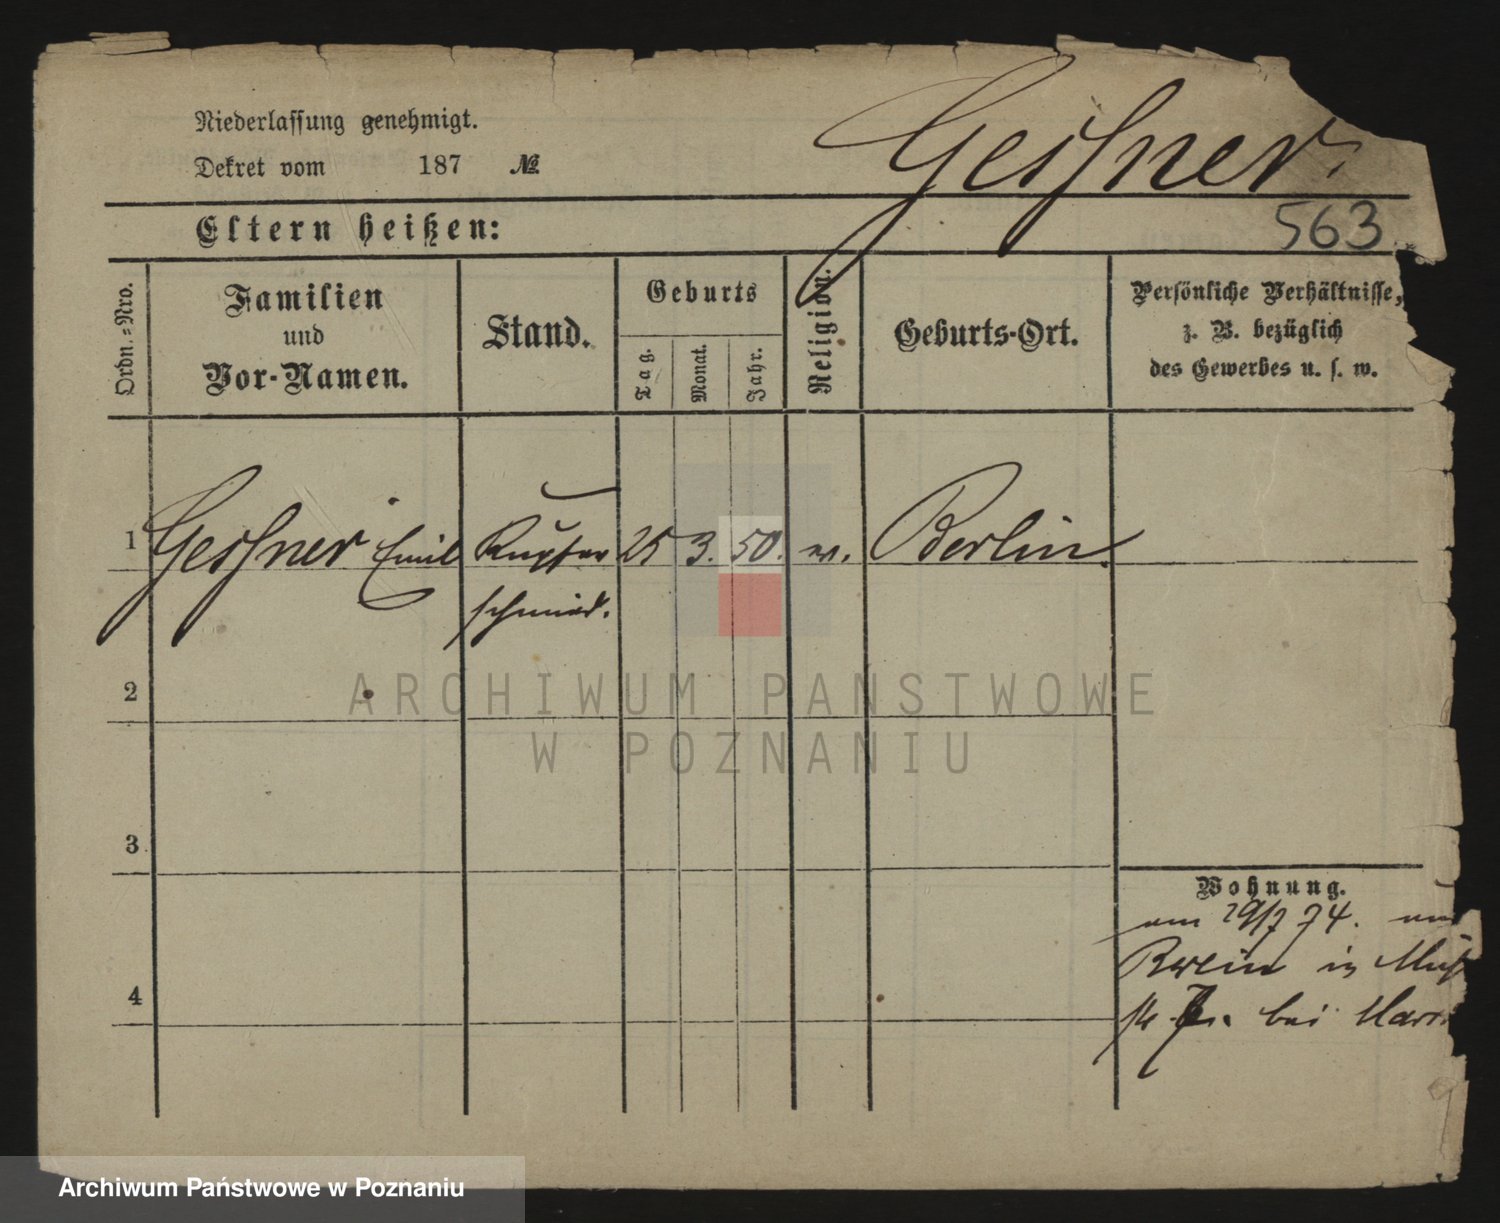 Niederlassung genehmigt.
Geßner.
Dekret vom 187 №
563
Eltern heißen:
Ordn.=Nro.
Familien
und
Vor-Namen.
Stand.
Geburts
Tag.
Monat.
Jahr.
Religion.
Geburts-Ort.
Persönliche Verhältnisse,
z. B. bezüglich
des Gewerbes u. s. w.
1 Geßner Emil Kupfer 25 3. 50. ev. Berlin
schmied.
2
ARCHIWUM PAŃSTWOWE
W POZNANIU
3
Wohnung.
am 29/7 74.
in
4
bei
Archiwum Państwowe w Poznaniu